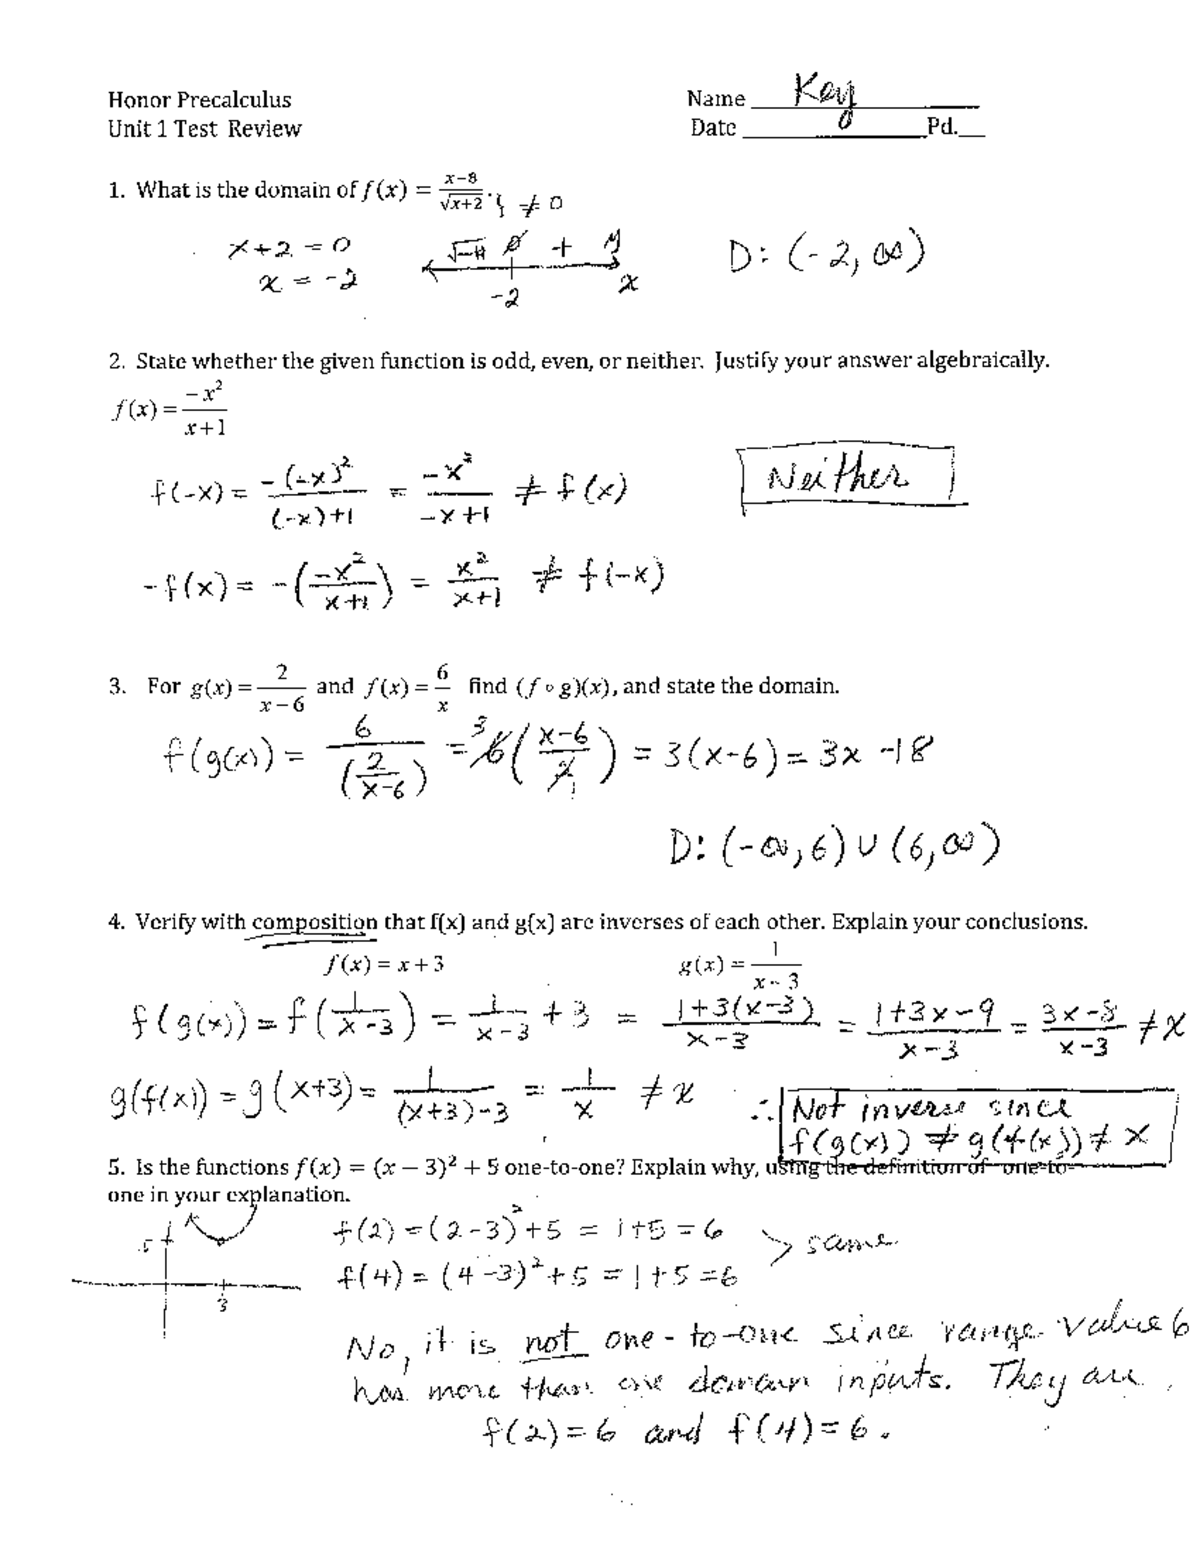 Honor Precalculus
Unit 1 Test Review
Name Key
Date Pd.
1. What is the domain of f(x) = (x−8)/√(x+2). } ≠ 0
x+2 = 0
x = -2
∅ + y
-2 x
D: (-2, ∞)
2. State whether the given function is odd, even, or neither. Justify your answer algebraically.
f(x) = −x²/(x+1)
f(-x) = -(-x)²/((-x)+1) = -x²/(-x+1) ≠ f(x)
Neither
-f(x) = -(-x²/(x+1)) = x²/(x+1) ≠ f(-x)
3. For g(x) = 2/(x−6) and f(x) = 6/x find (f ∘ g)(x), and state the domain.
f(g(x)) = 6/(2/(x-6)) = ³6((x-6)/2₁) = 3(x-6) = 3x -18
D: (-∞,6) ∪ (6,∞)
4. Verify with composition that f(x) and g(x) are inverses of each other. Explain your conclusions.
f(x) = x + 3 g(x) = 1/(x − 3)
f(g(x)) = f(1/(x-3)) = 1/(x-3) + 3 = (1+3(x-3))/(x-3) = (1+3x-9)/(x-3) = (3x-8)/(x-3) ≠ x
g(f(x)) = g(x+3) = 1/((x+3)-3) = 1/x ≠ x
∴ Not inverse since
f(g(x)) ≠ g(f(x)) ≠ x
5. Is the functions f(x) = (x − 3)² + 5 one-to-one? Explain why, using the definition of one-to-
one in your explanation.
5
3
f(2) = (2-3)² + 5 = 1+5 = 6
> same
f(4) = (4-3)² + 5 = 1+5 = 6
No, it is not one-to-one since range value 6
has more than one domain inputs. They are
f(2) = 6 and f(4) = 6.